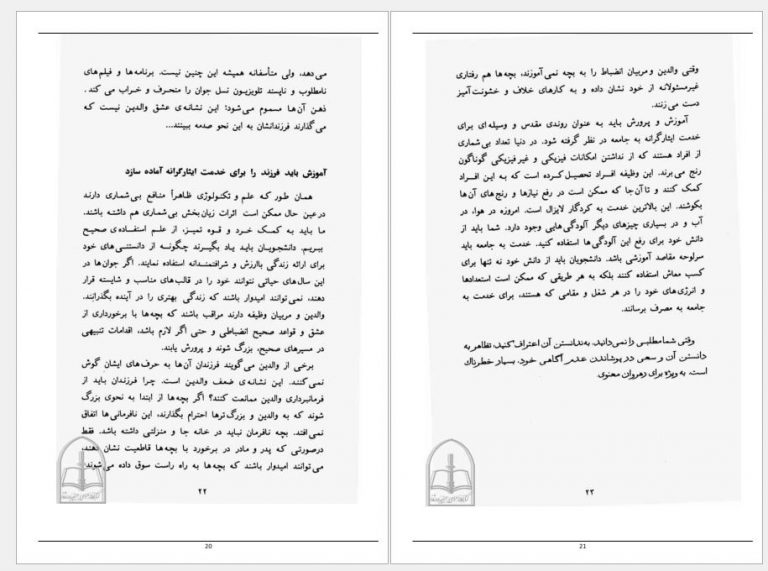 می‌دهد، ولی متأسفانه همیشه این چنین نیست. برنامه‌ها و فیلم‌های
نامطلوب و ناپسند تلویزیون نسل جوان را منحرف و خراب می‌کند.
ذهن آن‌ها مسموم می‌شود؛ این نشانه‌ی عشق والدین نیست که
می‌گذارند فرزندانشان به این نحو صدمه ببینند...
آموزش باید فرزند را برای خدمت ایثارگرانه آماده سازد
همان طور که علم و تکنولوژی ظاهراً منافع بی‌شماری دارند
درعین حال ممکن است اثرات زیان‌بخش بی‌شماری هم داشته باشند.
ما باید به کمک خرد و قوه تمیز، از علم استفاده‌ی صحیح
ببریم. دانشجویان باید یاد بگیرند چگونه از دانستنی‌های خود
برای ارائه زندگی باارزش و شرافتمندانه استفاده نمایند. اگر جوان‌ها در
این سال‌های حیاتی نتوانند خود را در قالب‌های مناسب و شایسته قرار
دهند، نمی‌توانند امیدوار باشند که زندگی بهتری را در آینده بگذرانند.
والدین و مربیان وظیفه دارند مراقب باشند که بچه‌ها با برخورداری از
عشق و قواعد صحیح انضباطی و حتی اگر لازم باشد، اقدامات تنبیهی
در مسیرهای صحیح، بزرگ شوند و پرورش یابند.
برخی از والدین می‌گویند فرزندان آن‌ها به حرف‌های ایشان گوش
نمی‌کنند. این نشانه‌ی ضعف والدین است. چرا فرزندان باید از
فرمانبرداری والدین ممانعت کنند؟ اگر بچه‌ها از ابتدا به نحوی بزرگ
شوند که به والدین و بزرگ‌ترها احترام بگذارند، این نافرمانی‌ها اتفاق
نمی‌افتد. بچه نافرمان نباید در خانه جا و منزلتی داشته باشد. فقط
درصورتی که پدر و مادر در برخورد با بچه‌ها قاطعیت نشان دهند،
می‌توانند امیدوار باشند که بچه‌ها به راه راست سوق داده می‌شوند.
۲۲
20
وقتی والدین و مربیان انضباط را به بچه نمی‌آموزند، بچه‌ها هم رفتاری
غیرمسئولانه از خود نشان داده و به کارهای خلاف و خشونت‌آمیز
دست می‌زنند.
آموزش و پرورش باید به عنوان روندی مقدس و وسیله‌ای برای
خدمت ایثارگرانه به جامعه در نظر گرفته شود. در دنیا تعداد بی‌شماری
از افراد هستند که از نداشتن امکانات فیزیکی و غیرفیزیکی گوناگون
رنج می‌برند. این وظیفه افراد تحصیل‌کرده است که به این افراد
کمک کنند و تا آن‌جا که ممکن است در رفع نیازها و رنج‌های آن‌ها
بکوشند. این بالاترین خدمت به کردگار لایزال است. امروزه در هوا، در
آب و در بسیاری چیزهای دیگر آلودگی‌هایی وجود دارد. شما باید از
دانش خود برای رفع این آلودگی‌ها استفاده کنید. خدمت به جامعه باید
سرلوحه مقاصد آموزشی باشد. دانشجویان باید از دانش خود نه تنها برای
کسب معاش استفاده کنند بلکه به هر طریقی که ممکن است استعدادها
و انرژی‌های خود را در هر شغل و مقامی که هستند، برای خدمت به
جامعه به مصرف برسانند.
وقتی شما مطلبی را نمی‌دانید، به ندانستن آن اعتراف کنید، تظاهر به
دانستن آن و سعی در پوشاندن عدم آگاهی خود، بسیار خطرناک
است، به ویژه برای رهروان معنوی.
۲۳
21